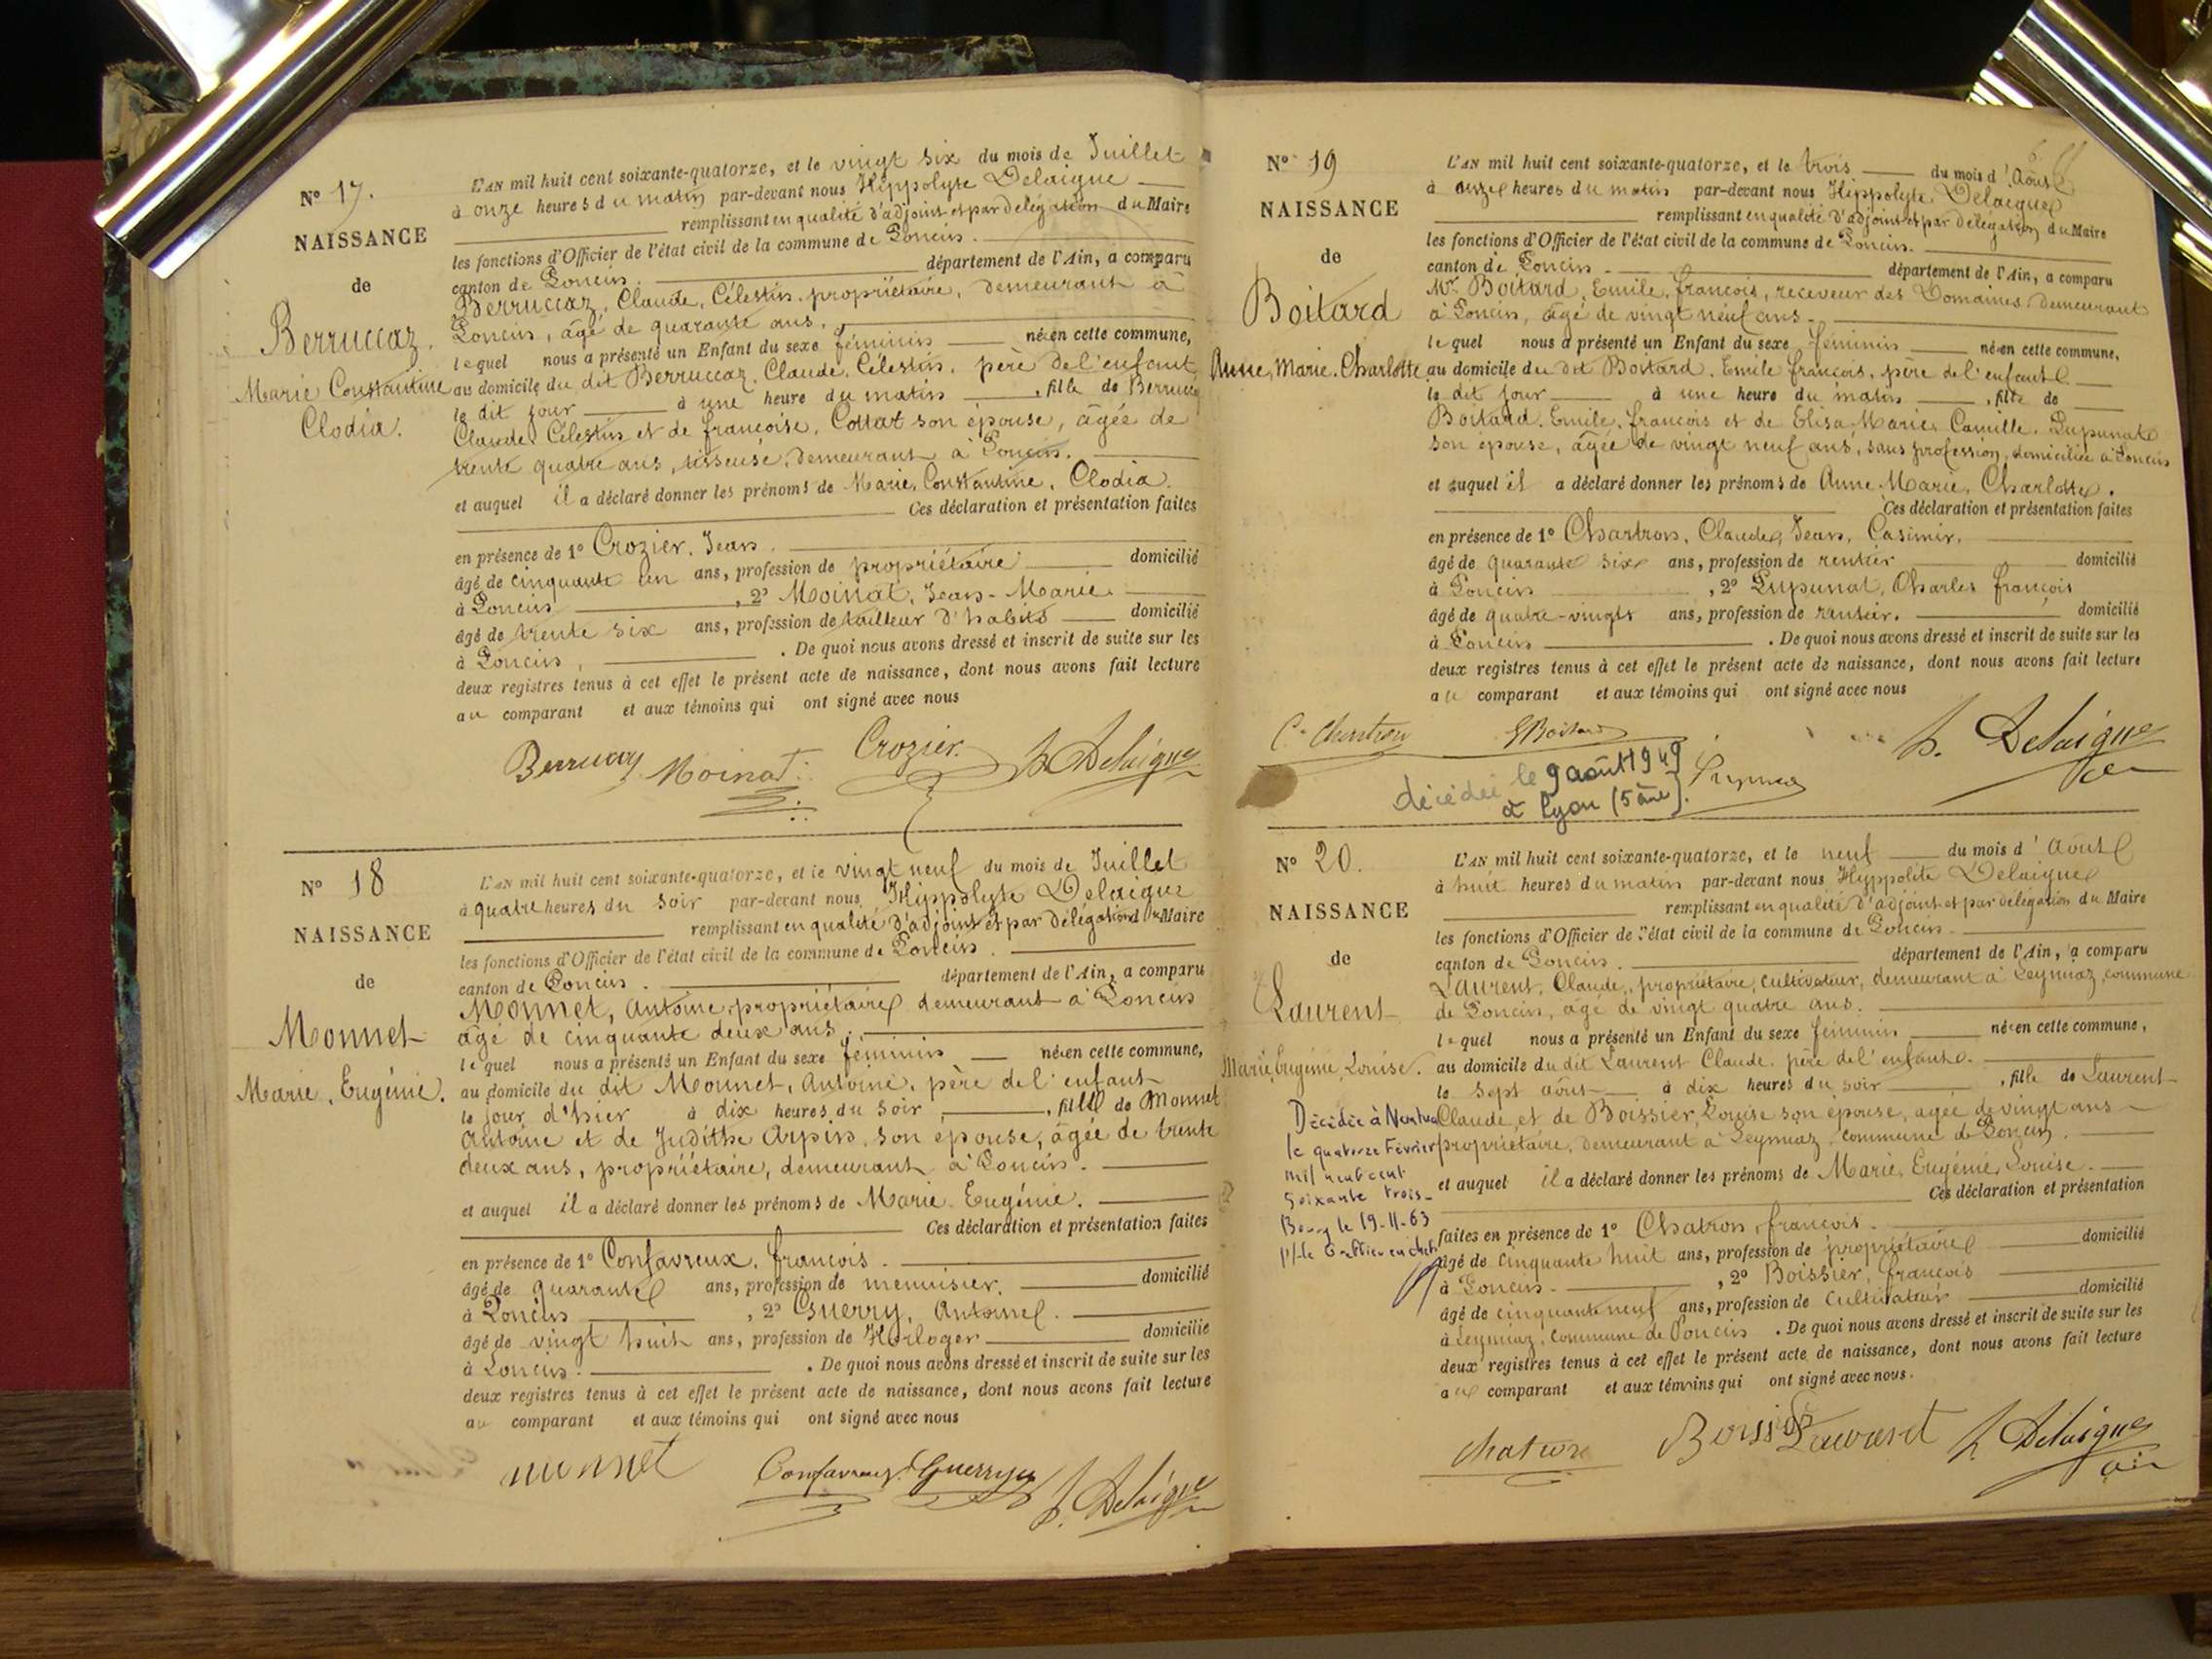 N° 17.
NAISSANCE
de
Berruccaz.
Marie Constantine
Clodia.
L'AN mil huit cent soixante-quatorze, et le vingt six du mois de Juillet
à onze heures du matin par-devant nous Hippolyte Delaigue
remplissant en qualité d'adjoint et par délégation du Maire
les fonctions d'Officier de l'état civil de la commune de Poncin.
canton de Poncin. département de l'Ain, a comparu
Berruccaz, Claude, Célestin, propriétaire, demeurant à
Poncin, âgé de quarante ans.
lequel nous a présenté un Enfant du sexe féminin né en cette commune,
au domicile du dit Berruccaz, Claude, Célestin, père de l'enfant
le dit jour à une heure du matin, fille de Berruccaz
Claude Célestin et de françoise, Collat son épouse, âgée de
trente quatre ans, tisseuse, demeurant à Poncin.
et auquel il a déclaré donner les prénoms de Marie, Constantine, Clodia.
Ces déclaration et présentation faites
en présence de 1° Crozier, Jean.
âgé de cinquante un ans, profession de propriétaire domicilié
à Poncin, 2° Moinat, Jean-Marie.
âgé de trente six ans, profession de tailleur d'habits domicilié
à Poncin, . De quoi nous avons dressé et inscrit de suite sur les
deux registres tenus à cet effet le présent acte de naissance, dont nous avons fait lecture
au comparant et aux témoins qui ont signé avec nous
Berrucaz Moinat Crozier. h. Delaigue
N° 18
NAISSANCE
de
Monnet
Marie, Eugénie.
L'AN mil huit cent soixante-quatorze, et le vingt neuf du mois de Juillet
à quatre heures du soir par-devant nous Hippolyte Delaigue
remplissant en qualité d'adjoint et par délégation du Maire
les fonctions d'Officier de l'état civil de la commune de Poncin.
canton de Poncin. département de l'Ain, a comparu
Monnet, Antoine, propriétaire demeurant à Poncin
âgé de cinquante deux ans.
lequel nous a présenté un Enfant du sexe féminin né en cette commune,
au domicile du dit Monnet, Antoine, père de l'enfant
le jour d'hier à dix heures du soir, fille de Monnet
Antoine et de Judithe Arpin, son épouse, âgée de trente
deux ans, propriétaire, demeurant à Poncin.
et auquel il a déclaré donner les prénoms de Marie Eugénie.
Ces déclaration et présentation faites
en présence de 1° Confavreux, françois.
âgé de quarante ans, profession de menuisier. domicilié
à Poncin, 2° Guerry, Antoine.
âgé de vingt huit ans, profession de Horloger domicilié
à Poncin. . De quoi nous avons dressé et inscrit de suite sur les
deux registres tenus à cet effet le présent acte de naissance, dont nous avons fait lecture
au comparant et aux témoins qui ont signé avec nous
monnet Confavreux Guerry h. Delaigue
N° 19
NAISSANCE
de
Boitard
Anne, Marie, Charlotte
L'AN mil huit cent soixante-quatorze, et le trois du mois d'Août
à onze heures du matin par-devant nous Hippolyte, Delaigue
remplissant en qualité d'adjoint et par délégation du Maire
les fonctions d'Officier de l'état civil de la commune de Poncin.
canton de Poncin. département de l'Ain, a comparu
Mr Boitard, Emile, françois, receveur des Domaines, demeurant
à Poncin, âgé de vingt neuf ans.
lequel nous a présenté un Enfant du sexe féminin né en cette commune,
au domicile du dit Boitard, Emile françois, père de l'enfant.
le dit jour à une heure du matin, fille de
Boitard, Emile, françois et de Elisa Marie Camille, Dupunat
son épouse, âgée de vingt neuf ans, sans profession, domiciliée à Poncin
et auquel il a déclaré donner les prénoms de Anne Marie, Charlotte.
Ces déclaration et présentation faites
en présence de 1° Chartron, Claude, Jean, Casimir,
âgé de quarante six ans, profession de rentier domicilié
à Poncin, 2° Dupunat, Charles françois
âgé de quatre-vingts ans, profession de rentier. domicilié
à Poncin . De quoi nous avons dressé et inscrit de suite sur les
deux registres tenus à cet effet le présent acte de naissance, dont nous avons fait lecture
au comparant et aux témoins qui ont signé avec nous
EBoitard h. Delaigue
décédée le 9 août 1949
à Lyon (5ème).
N° 20.
NAISSANCE
de
Laurent
Marie, Eugénie, Louise.
Décédée à Nantua
le quatorze Février
mil neuf cent
soixante trois_
Bourg le 19-11-63
P/-le Greffier en chef
L'AN mil huit cent soixante-quatorze, et le neuf du mois d'Août
à huit heures du matin par-devant nous Hyppolite Delaigue
remplissant en qualité d'adjoint et par délégation du Maire
les fonctions d'Officier de l'état civil de la commune de Poncin.
canton de Poncin. département de l'Ain, a comparu
Laurent, Claude, propriétaire, cultivateur, demeurant à Leymiaz, commune
de Poncin, âgé de vingt quatre ans.
lequel nous a présenté un Enfant du sexe féminin né en cette commune,
au domicile du dit Laurent Claude, père de l'enfant.
le sept août à dix heures du soir, fille de Laurent
Claude, et de Boissier, Louise son épouse, agée de vingt ans
propriétaire, demeurant à Leymiaz, commune de Poncin.
et auquel il a déclaré donner les prénoms de Marie, Eugénie, Louise.
Ces déclaration et présentation
faites en présence de 1° Chatron, françois.
âgé de cinquante huit ans, profession de propriétaire domicilié
à Poncin. , 2° Boissier, françois
âgé de cinquante neuf ans, profession de Cultivateur domicilié
à Leymiaz, commune de Poncin . De quoi nous avons dressé et inscrit de suite sur les
deux registres tenus à cet effet le présent acte de naissance, dont nous avons fait lecture
au comparant et aux témoins qui ont signé avec nous.
chatron Boissier Laurent h. Delaigue